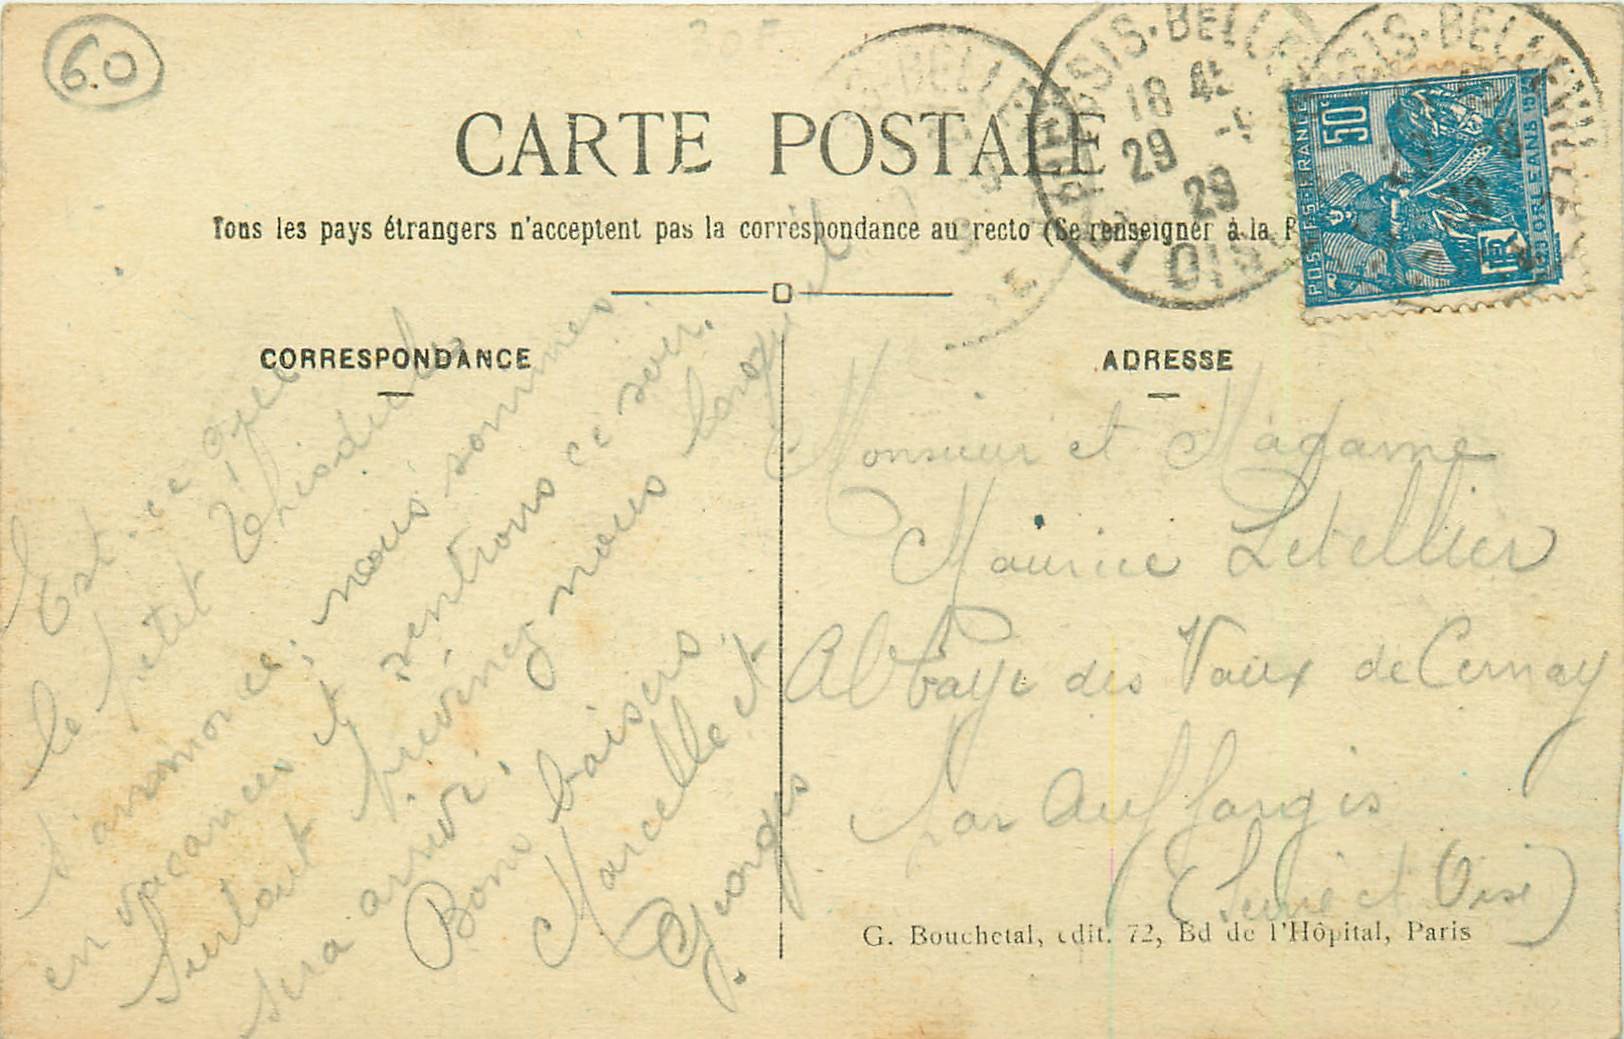 60
30F
CARTE POSTALE
Tous les pays étrangers n'acceptent pas la correspondance au recto (Se renseigner à la P
LE PLESSIS-BELLEVILLE
18 45
29
29
OISE
POSTES FRANCE
50c
ORLEANS 1929
RF
CORRESPONDANCE
Est-ce que
le petit
s'annonce; nous sommes
en vacances et rentrons ce soir.
Surtout prévenez nous lorsqu'il
sera arrivé.
Bons baisers
Marcelle et
Georges
ADRESSE
Monsieur et Madame
Maurice Letellier
Abbaye des Vaux de Cernay
par Auffargis
(Seine et Oise)
G. Bouchetal, édit. 72, Bd de l'Hôpital, Paris